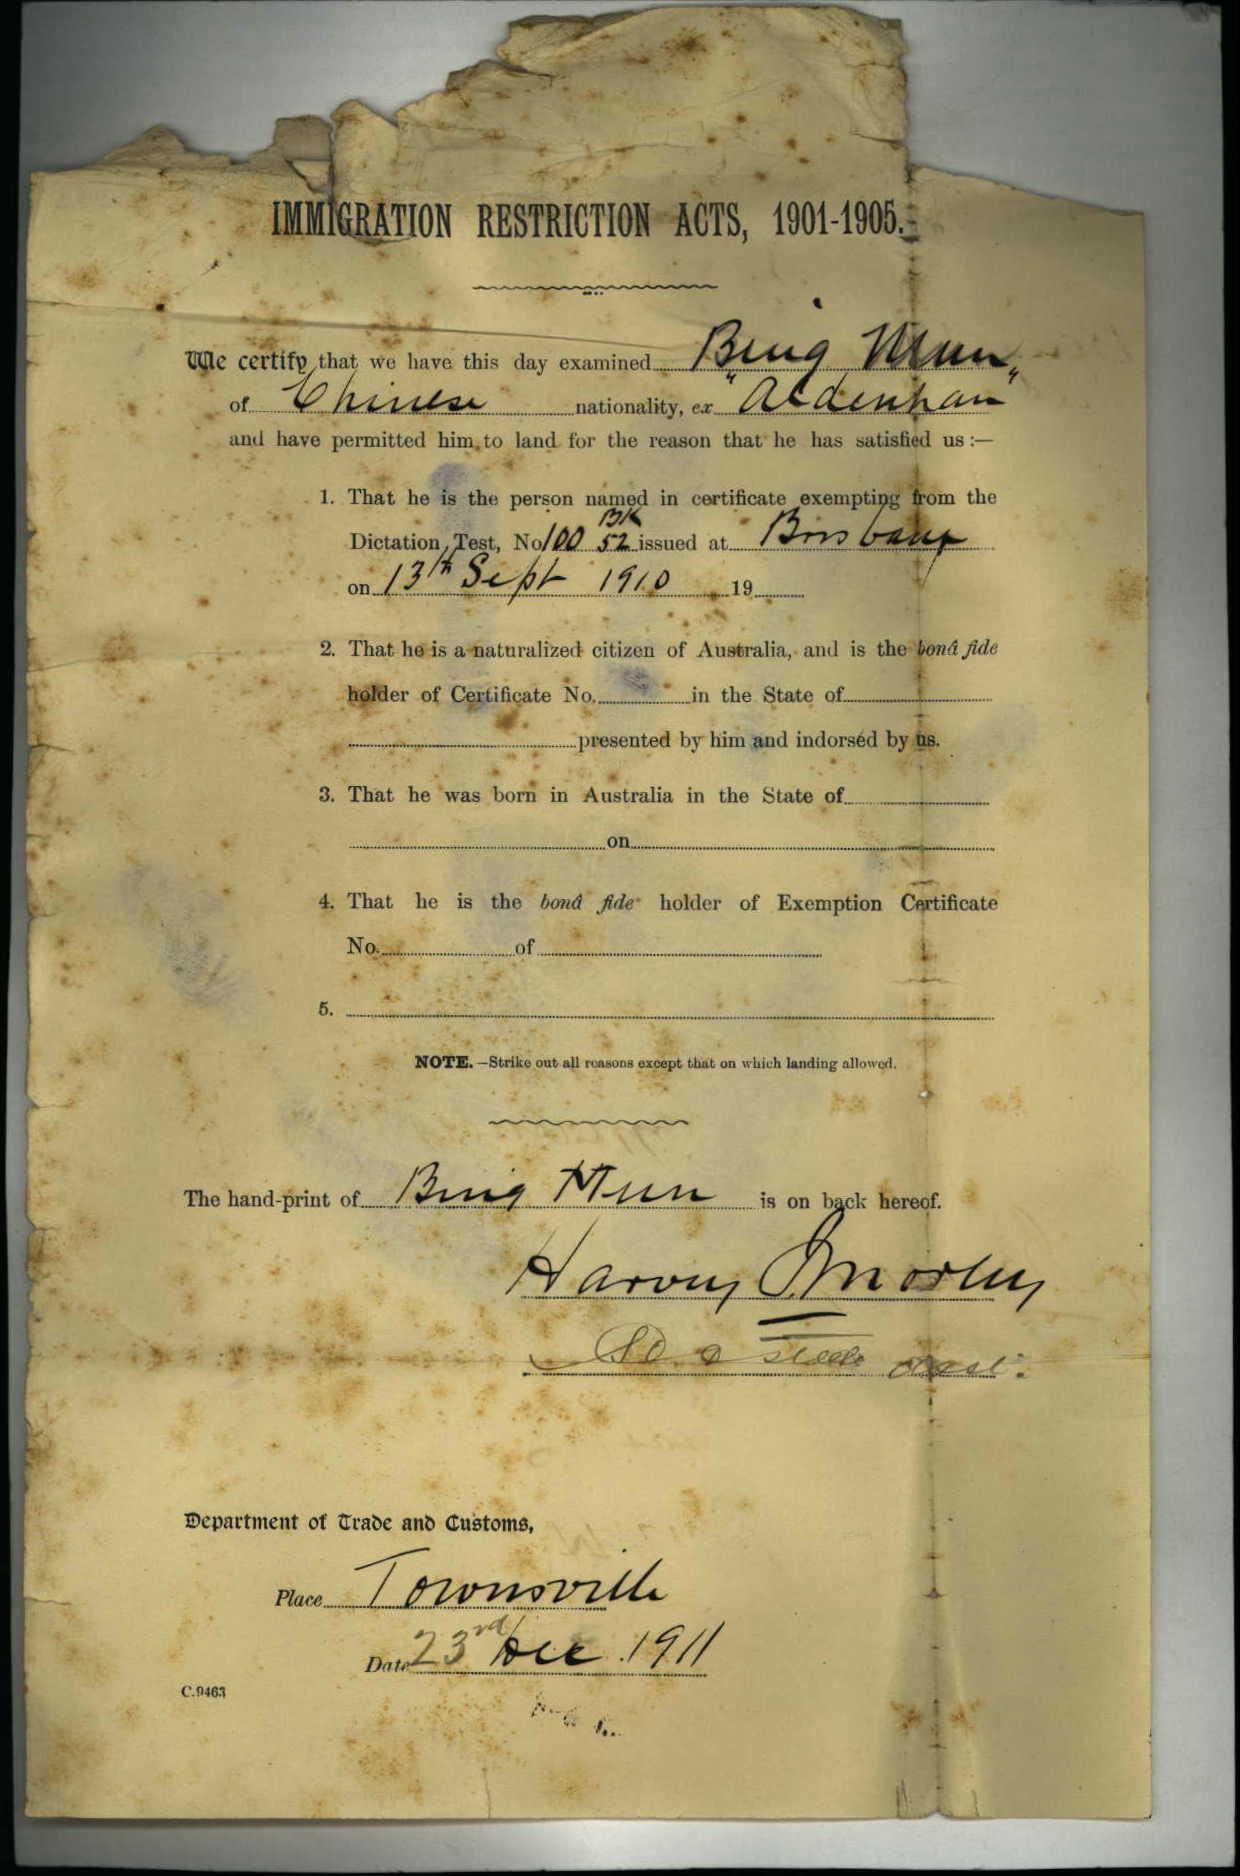 IMMIGRATION RESTRICTION ACTS, 1901-1905.
We certify that we have this day examined Bing Mun
of Chinese nationality, ex "Aldenham"
and have permitted him to land for the reason that he has satisfied us :—
1. That he is the person named in certificate exempting from the
BK
Dictation Test, No 100 52 issued at Brisbane
on 13th Sept 1910 19
2. That he is a naturalized citizen of Australia, and is the bonâ fide
holder of Certificate No. in the State of
presented by him and indorsed by us.
3. That he was born in Australia in the State of
on
4. That he is the bonâ fide holder of Exemption Certificate
No. of
5.
NOTE.—Strike out all reasons except that on which landing allowed.
The hand-print of Bing Mun is on back hereof.
Harvey Morley
Department of Trade and Customs,
Place Townsville
Date 23rd Dec 1911
C.9463